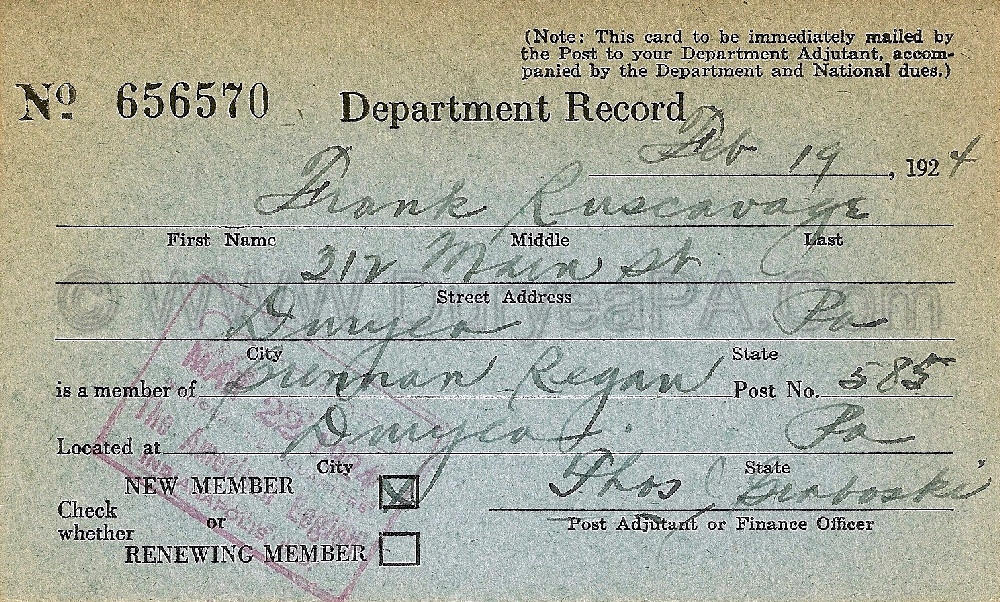 (Note: This card to be immediately mailed by
the Post to your Department Adjutant, accom-
panied by the Department and National dues.)
Nº 656570 Department Record
Feb 19, 1924
Frank Ruscavage
First Name Middle Last
312 Main St
Street Address
© www.DuryeaPA.com
Duryea Pa
City State
is a member of Brennan Regan Post No. 585
Located at Duryea. Pa
City State
NEW MEMBER X
Check
whether or
RENEWING MEMBER
Thos
Post Adjutant or Finance Officer
MAR 22 1924
The American Legion
Indianapolis